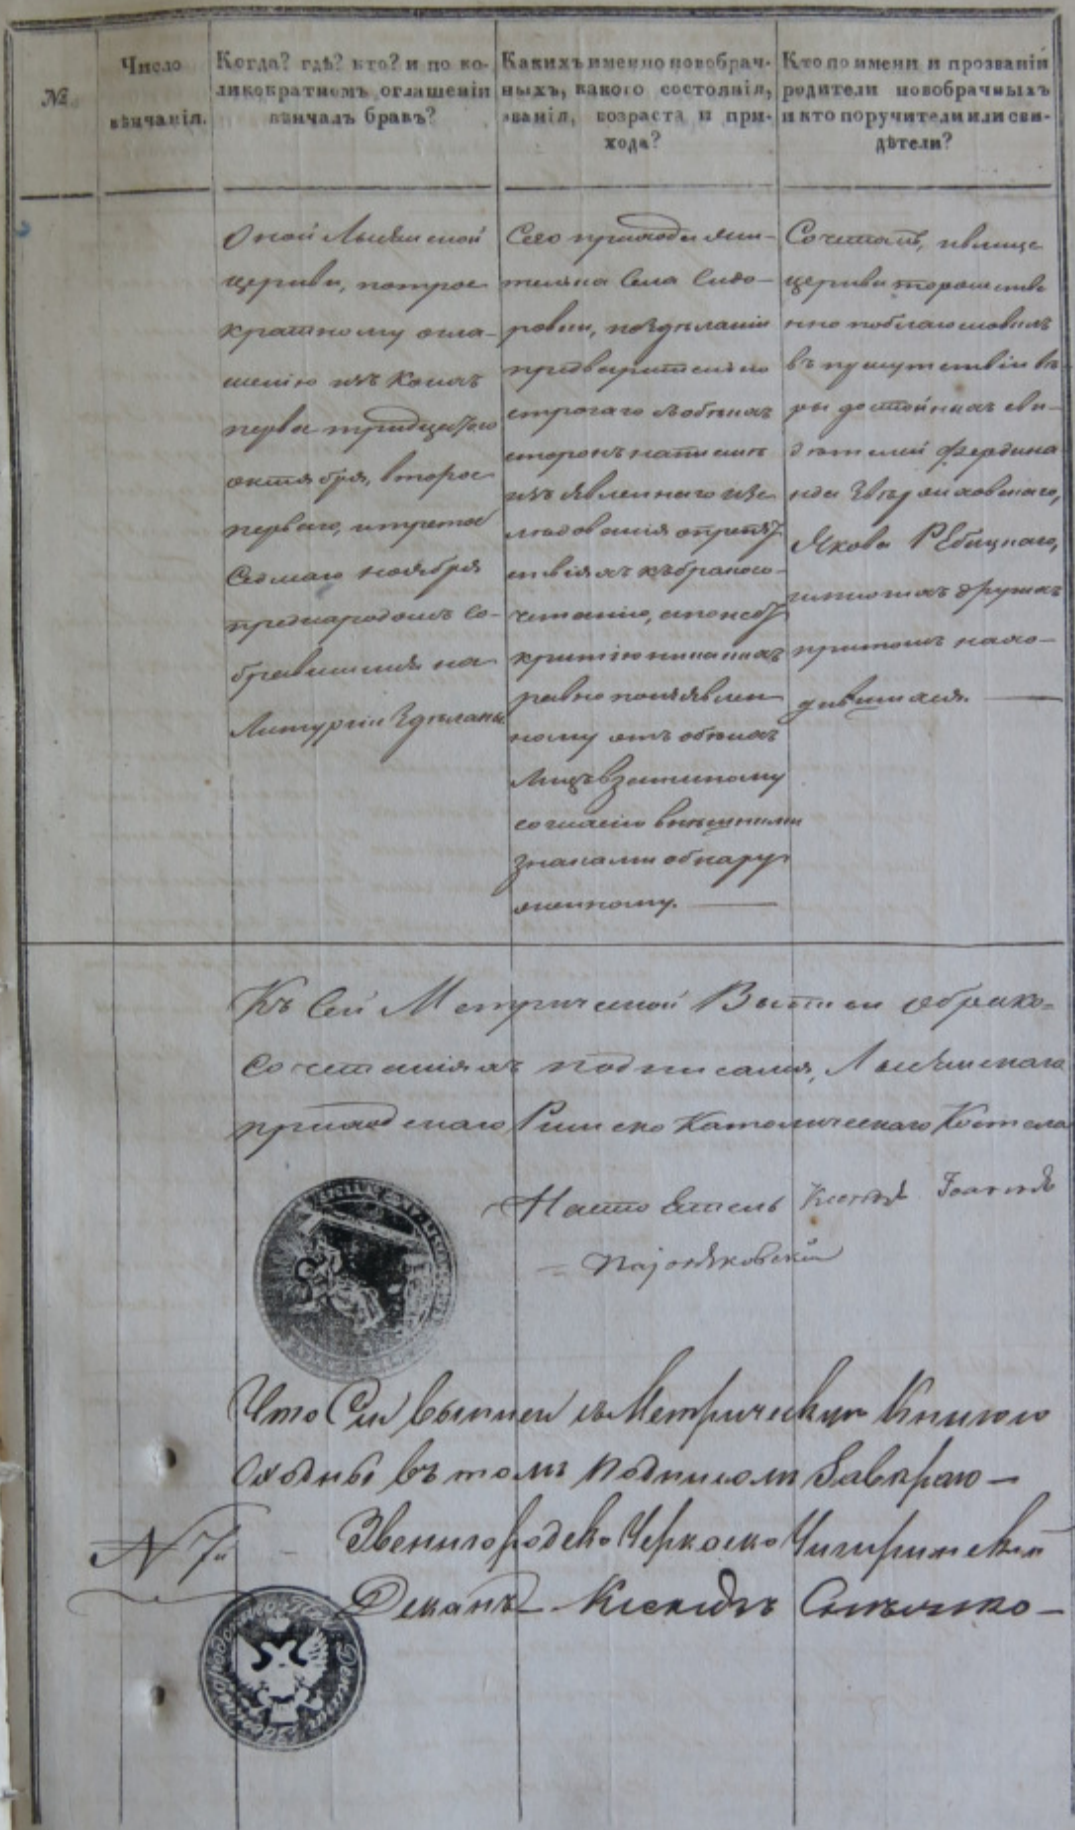 №
Число
вѣнчанія.
Когда? гдѣ? кто? и по ко-
ликократномъ оглашеніи
вѣнчалъ бракъ?
Какихъ именно новобрач-
ныхъ, какого состоянія,
званія, возраста и при-
хода?
Кто по имени и прозванію
родители новобрачныхъ
и кто поручители или сви-
дѣтели?
Оной Лысянской
церкви, потрое
кратному огла-
шенію изъ коихъ
первое тридцатого
октября, второе
перваго, и третое
Седмаго ноября
предъ народомъ со-
бравшимся на
Литургіи Зделаны
Сего прихода жи-
теляна Села Сидо-
ровки, поздѣланіи
предварительно
строгаго собѣихъ
сторонъ написмѣ
изъявленнаго изс
лѣдованія опрепят
ствіяхъ къбракосо-
четанію, а понеот
крытію никакихъ
равно поизъявлен
ному отъ обѣихъ
Лицъ взаимному
согласію внѣшними
знаками обнару
женному.
Сочеталъ, ивлице
церкви торжестве
нно поблагословилъ
въ присутствіи вѣ-
ры достойныхъ сви-
дѣтелей Фердина
нда
Якова Рѣбицкаго,
имногихъ другихъ
притомъ нахо-
дившихся.
Къ Сей Метрической Выписи обрако-
Сочетаніяхъ подписался, Лысянскаго
приходскаго Римско Католическаго Костела
Настоятель Ксендзъ Іоаннъ
Что Сіи выписи съ Метрическою Книгою
Сходны въ томъ подписомъ Завѣряю —
№ 7й — Звенигородско Черкаско Чигиринскій
Деканъ Ксендзъ